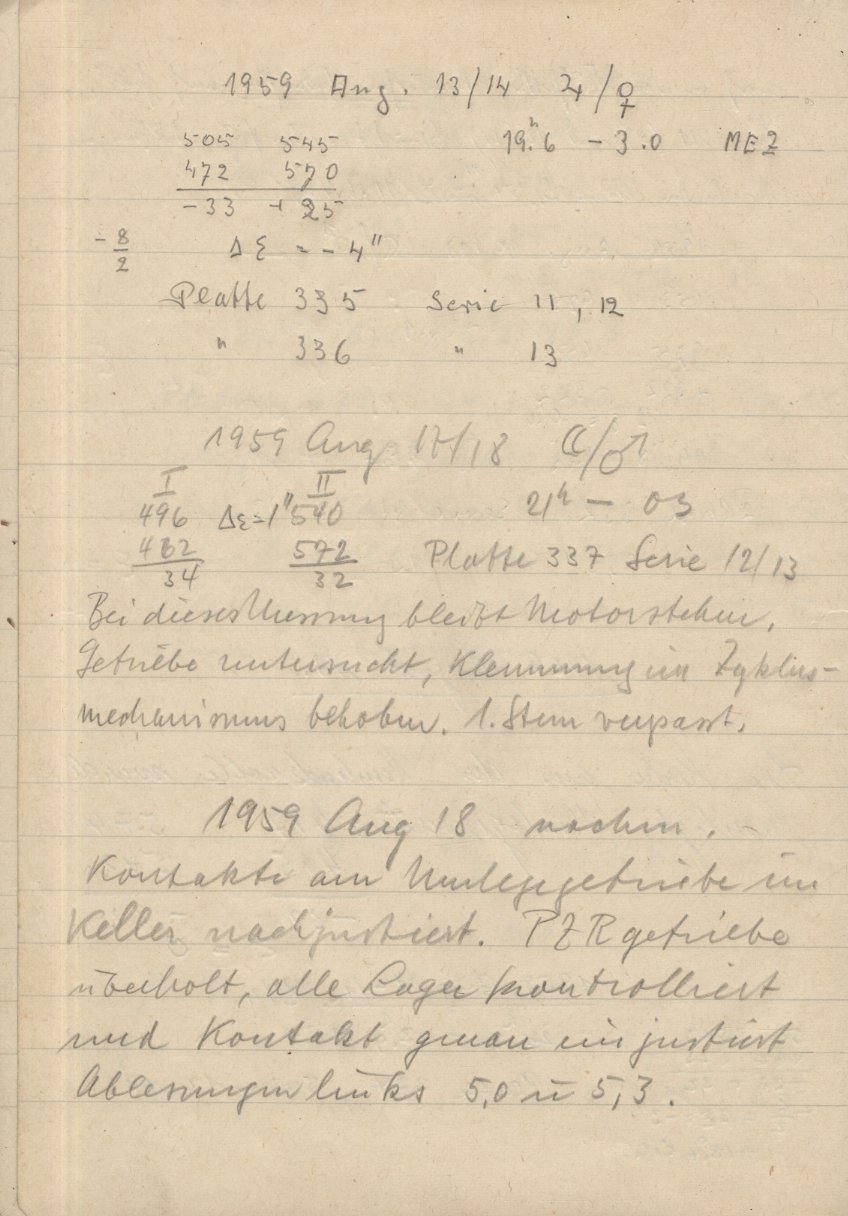 1959 Aug. 13/14 ♃/♀
505 545 19.ʰ6 – 3.0 MEZ
472 570
-33 + 25
-8/2 Δε = - 4"
Platte 335 Serie 11, 12
" 336 " 13
1959 Aug 17/18 ☾/♂
I II
496 Δε=1" 540 21ʰ — 03
462 572 Platte 337 Serie 12/13
34 32
Bei dieser Messung bleibt Motor stehen.
Getriebe untersucht, Klemmung im Zyklus-
mechanismus behoben. 1. Stern verpasst.
1959 Aug 18 nachm.
Kontakte am Umlegegetriebe im
Keller nachjustiert. PZR getriebe
überholt, alle Lager kontrolliert
und Kontakt genau einjustiert
Ablesungen links 5,0 u 5,3.